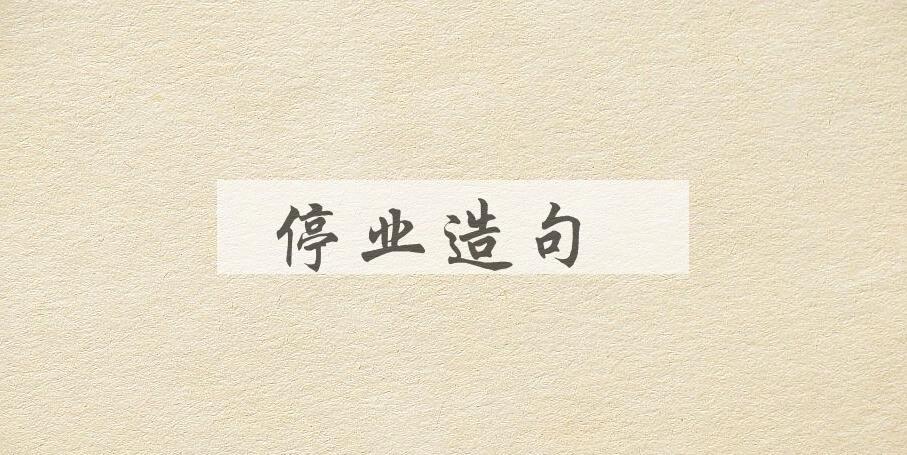 停业造句